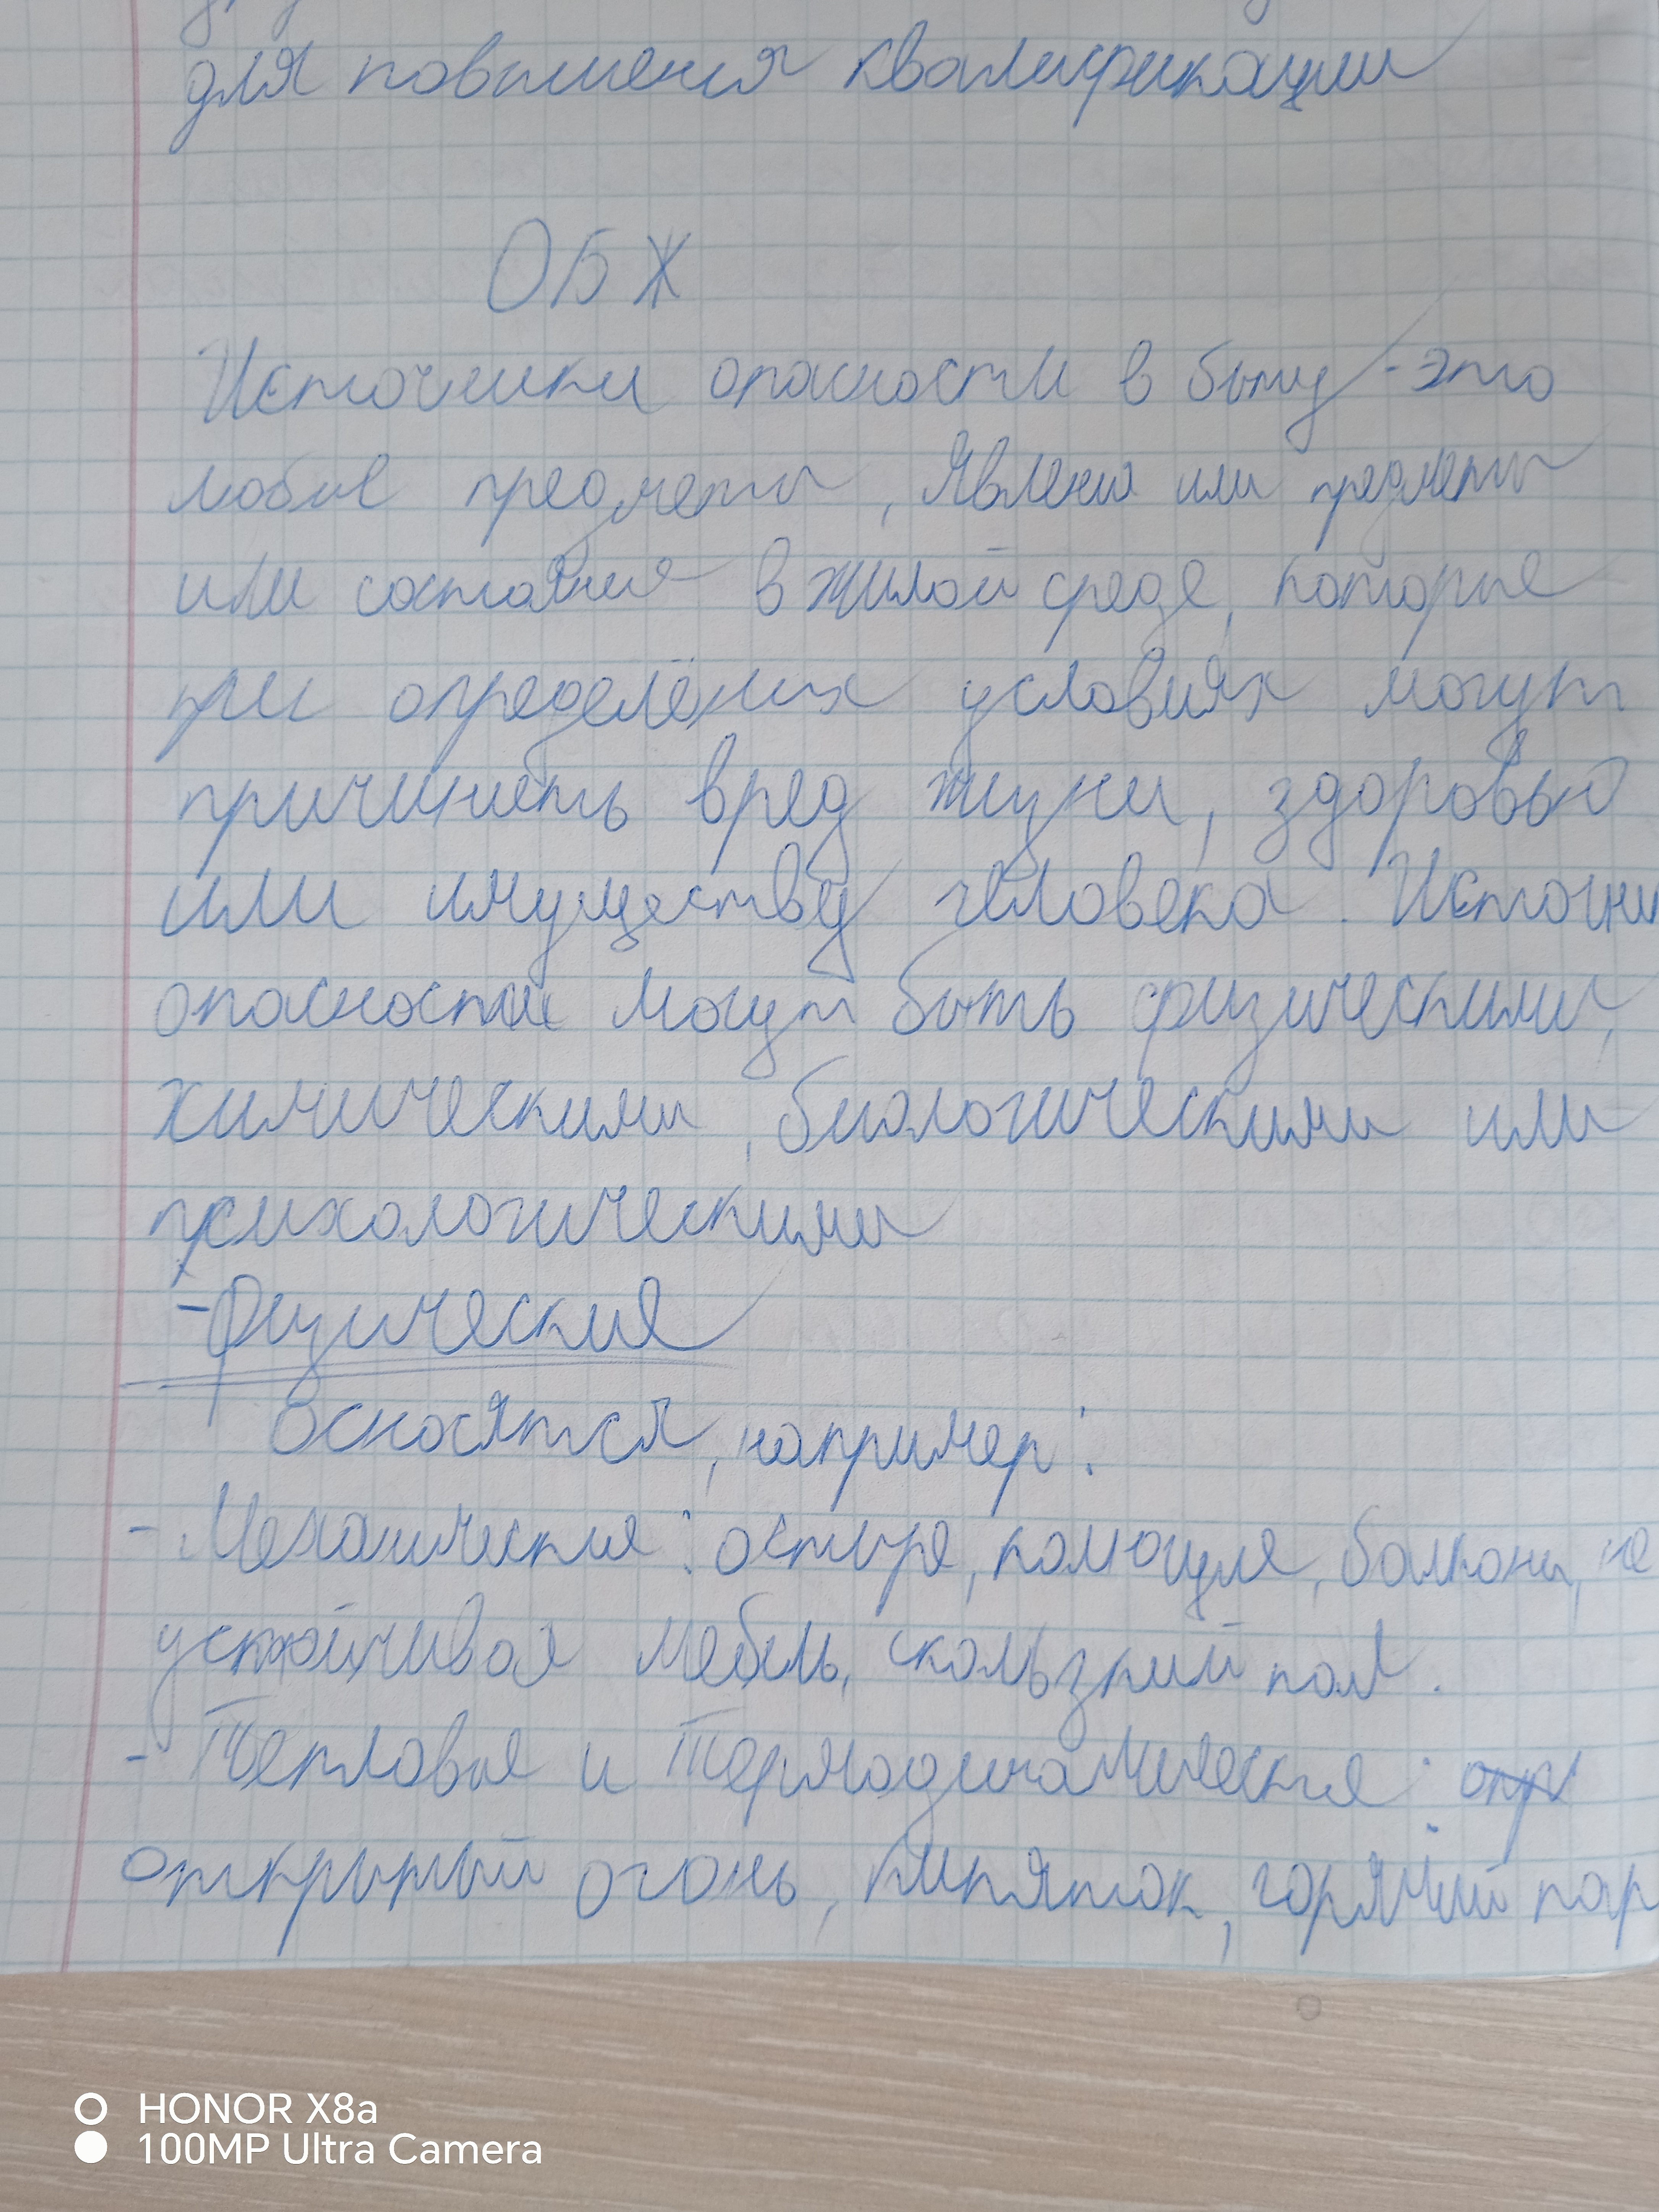 для повышения квалификации
ОБЖ
Источники опасности в быту - это
любые предметы, явления или предметы
или состояние в жилой среде, которые
при определёных условиях могут
причинить вред жизни, здоровью
или имуществу человека. Источни
опасности могут быть физическими,
химическими, биологическими или
психологическими
- Физические
Осносятся, например:
- Механические: острые, колющие, балконы, не
устойчивая мебель, скользкий пол.
- Тепловые и Термодинамические:
открытый огонь, кипяток, горячий пар
HONOR X8a
100MP Ultra Camera